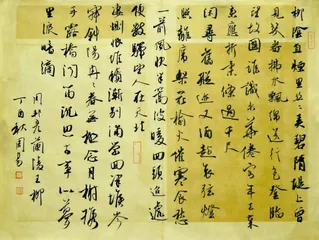 柳陰直煙里絲絲弄碧隋堤上曾
見幾番拂水飄綿送行色登臨
望故國誰識京華倦客長亭路年去歲來
應折柔條過千尺
閑尋舊蹤迹又酒趁哀弦燈
照離席梨花榆火催寒食愁
一箭風快半篙波暖回頭迢遞
便數驛望人在天北
凄惻恨堆積漸別浦縈回津堠岑
寂斜陽冉冉春無極念月榭攜
手露橋聞笛沉思前事似夢
里淚暗滴
周邦彥蘭陵王柳
丁酉秋周